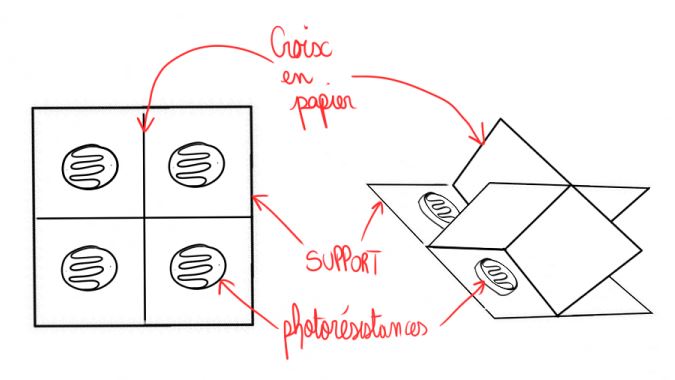 Croix
en
papier
SUPPORT
photorésistances